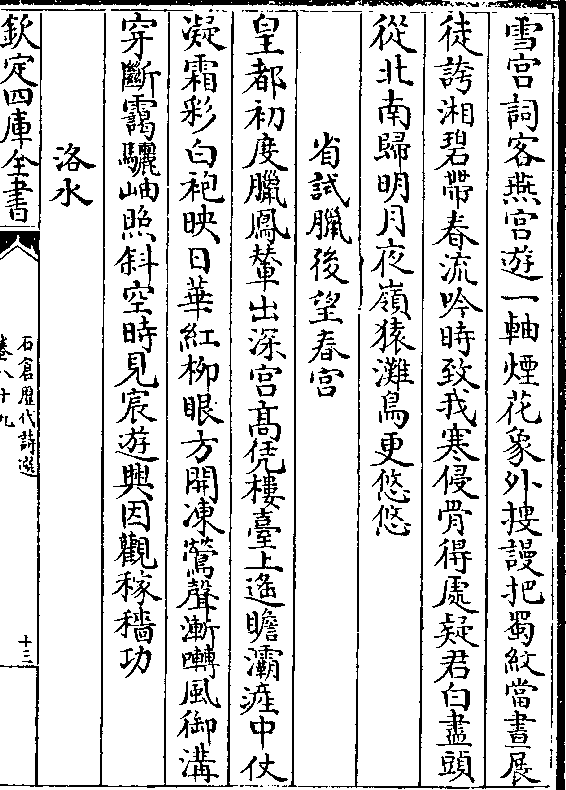 雪宫詞客燕宫遊一軸煙花象外捜謾把蜀紋當晝展
徒誇湘碧帶春流吟時致我寒侵骨得處疑君白盡頭
從北南歸明月夜嶺猿灘鳥更悠悠
省試臘後望春宫
皇都初度臘鳳輦出深宫髙凭樓臺上遙瞻灞滻中仗
凝霜彩白袍映日華紅柳眼方開凍鶯聲漸囀風御溝
穿斷靄驪岫照斜空時見宸遊興因觀稼穡功
洛水
欽定四庫全書
石倉歷代詩選
卷八十九
十三